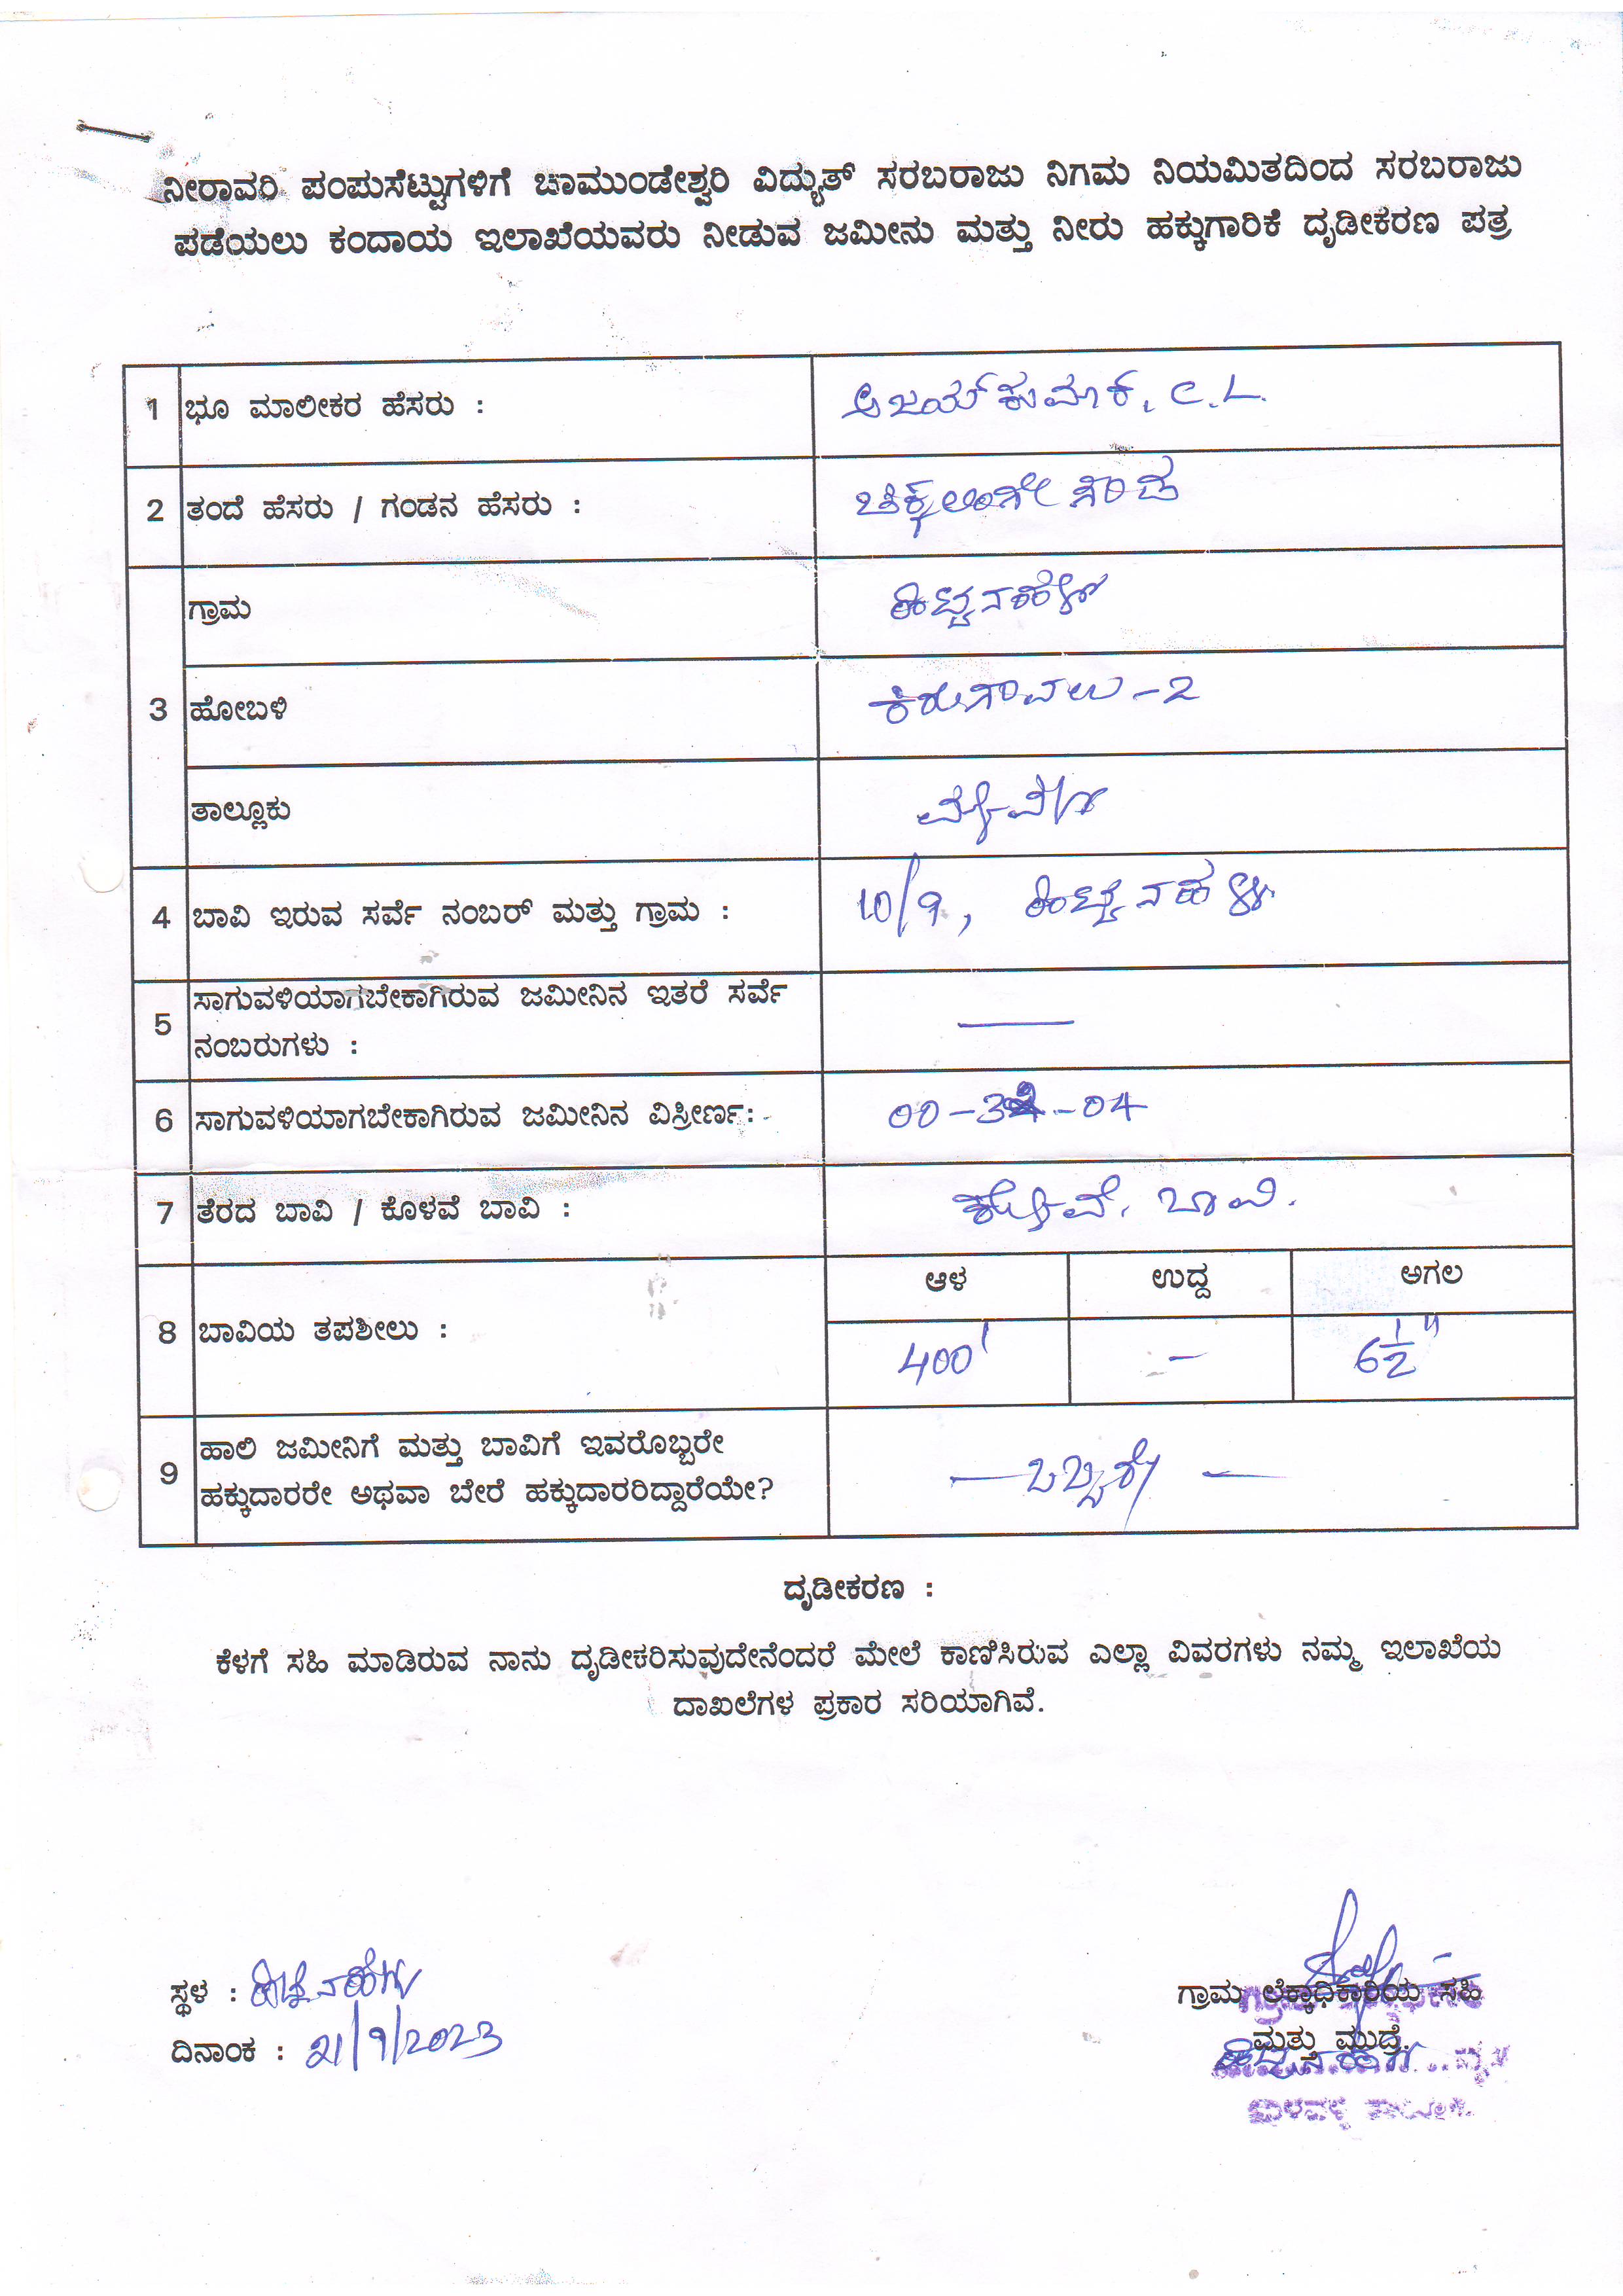 ನೀರಾವರಿ ಪಂಪುಸೆಟ್ಟುಗಳಿಗೆ ಚಾಮುಂಡೇಶ್ವರಿ ವಿದ್ಯುತ್ ಸರಬರಾಜು ನಿಗಮ ನಿಯಮಿತದಿಂದ ಸರಬರಾಜು
ಪಡೆಯಲು ಕಂದಾಯ ಇಲಾಖೆಯವರು ನೀಡುವ ಜಮೀನು ಮತ್ತು ನೀರು ಹಕ್ಕುಗಾರಿಕೆ ದೃಡೀಕರಣ ಪತ್ರ
1 ಭೂ ಮಾಲೀಕರ ಹೆಸರು : ಅಜಯ್ ಕುಮಾರ್. C.L.
2 ತಂದೆ ಹೆಸರು / ಗಂಡನ ಹೆಸರು :
ಗ್ರಾಮ
3 ಹೋಬಳಿ ಕಿರುಗಾವಲು -2
ತಾಲ್ಲೂಕು
4 ಬಾವಿ ಇರುವ ಸರ್ವೆ ನಂಬರ್ ಮತ್ತು ಗ್ರಾಮ : 10/9,
ಸಾಗುವಳಿಯಾಗಬೇಕಾಗಿರುವ ಜಮೀನಿನ ಇತರೆ ಸರ್ವೆ
5 ನಂಬರುಗಳು : —
6 ಸಾಗುವಳಿಯಾಗಬೇಕಾಗಿರುವ ಜಮೀನಿನ ವಿಸ್ತೀರ್ಣ: 00 - - 04
7 ತೆರದ ಬಾವಿ / ಕೊಳವೆ ಬಾವಿ : ಕೊಳವೆ. ಬಾವಿ.
ಆಳ ಉದ್ದ ಅಗಲ
8 ಬಾವಿಯ ತಪಶೀಲು : 400' - 6½"
ಹಾಲಿ ಜಮೀನಿಗೆ ಮತ್ತು ಬಾವಿಗೆ ಇವರೊಬ್ಬರೇ
9 ಹಕ್ಕುದಾರರೇ ಅಥವಾ ಬೇರೆ ಹಕ್ಕುದಾರರಿದ್ದಾರೆಯೇ? — ಒಬ್ಬರೇ —
ದೃಡೀಕರಣ :
ಕೆಳಗೆ ಸಹಿ ಮಾಡಿರುವ ನಾನು ದೃಡೀಕರಿಸುವುದೇನೆಂದರೆ ಮೇಲೆ ಕಾಣಿಸಿರುವ ಎಲ್ಲಾ ವಿವರಗಳು ನಮ್ಮ ಇಲಾಖೆಯ
ದಾಖಲೆಗಳ ಪ್ರಕಾರ ಸರಿಯಾಗಿವೆ.
ಸ್ಥಳ :
ದಿನಾಂಕ : 21/9/2023
ಗ್ರಾಮ ಲೆಕ್ಕಾಧಿಕಾರಿಯ ಸಹಿ
ಮತ್ತು ಮುದ್ರೆ.